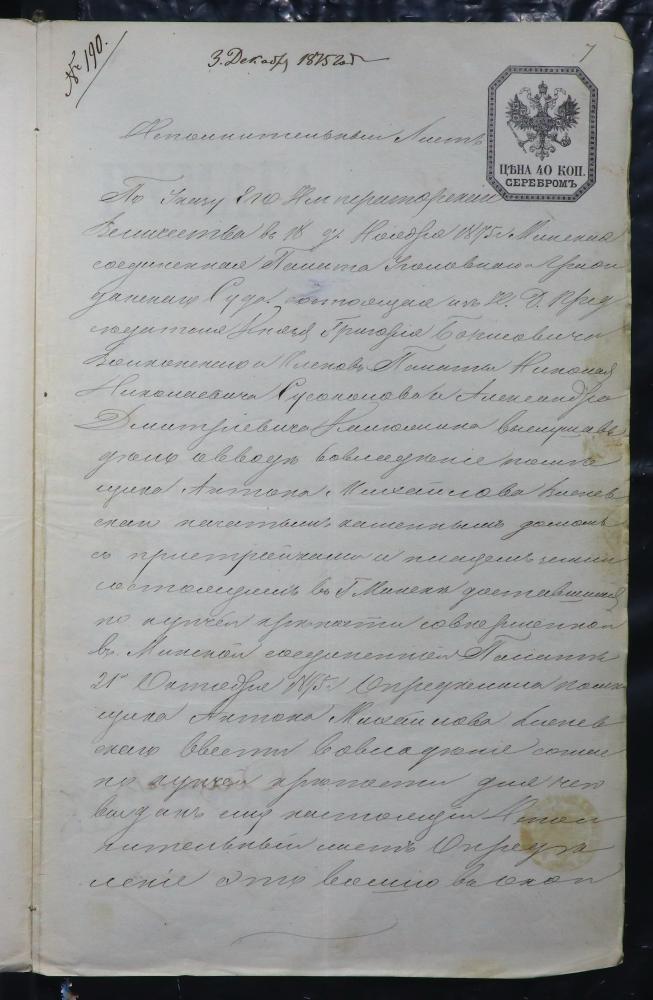 № 190.
3. Декабр 1875 год
7
ЦѢНА 40 КОП.
СЕРЕБРОМЪ
Исполнительный Листъ
По Указу Его Императорскаго
Величества въ 18 д. Ноября 1875 г. Минская
соединенная Палата Уголовнаго и Граж
данскаго Суда состоящая изъ И. Д. Пред
седателя Князя Григорія Борисовича
и Членовъ Палаты Николая
Николаевича и Александра
Дмитріевича выслушавъ
дѣло о вводѣ во владѣніе помѣ
щика Антона Михайлова
каменнымъ домомъ
съ пристройками и
состоящимъ въ Г. Минскѣ доставшимся
по купчей крѣпости совершенной
въ Минской соединенной Палатѣ
21 Октября 1875 г. Опредѣлила помѣ
щика Антона Михайлова
скаго ввести во владѣніе
по купчей крѣпости для чего
выданъ ему настоящій Испол
нительный листъ Опредѣ
леніе это вошло въ